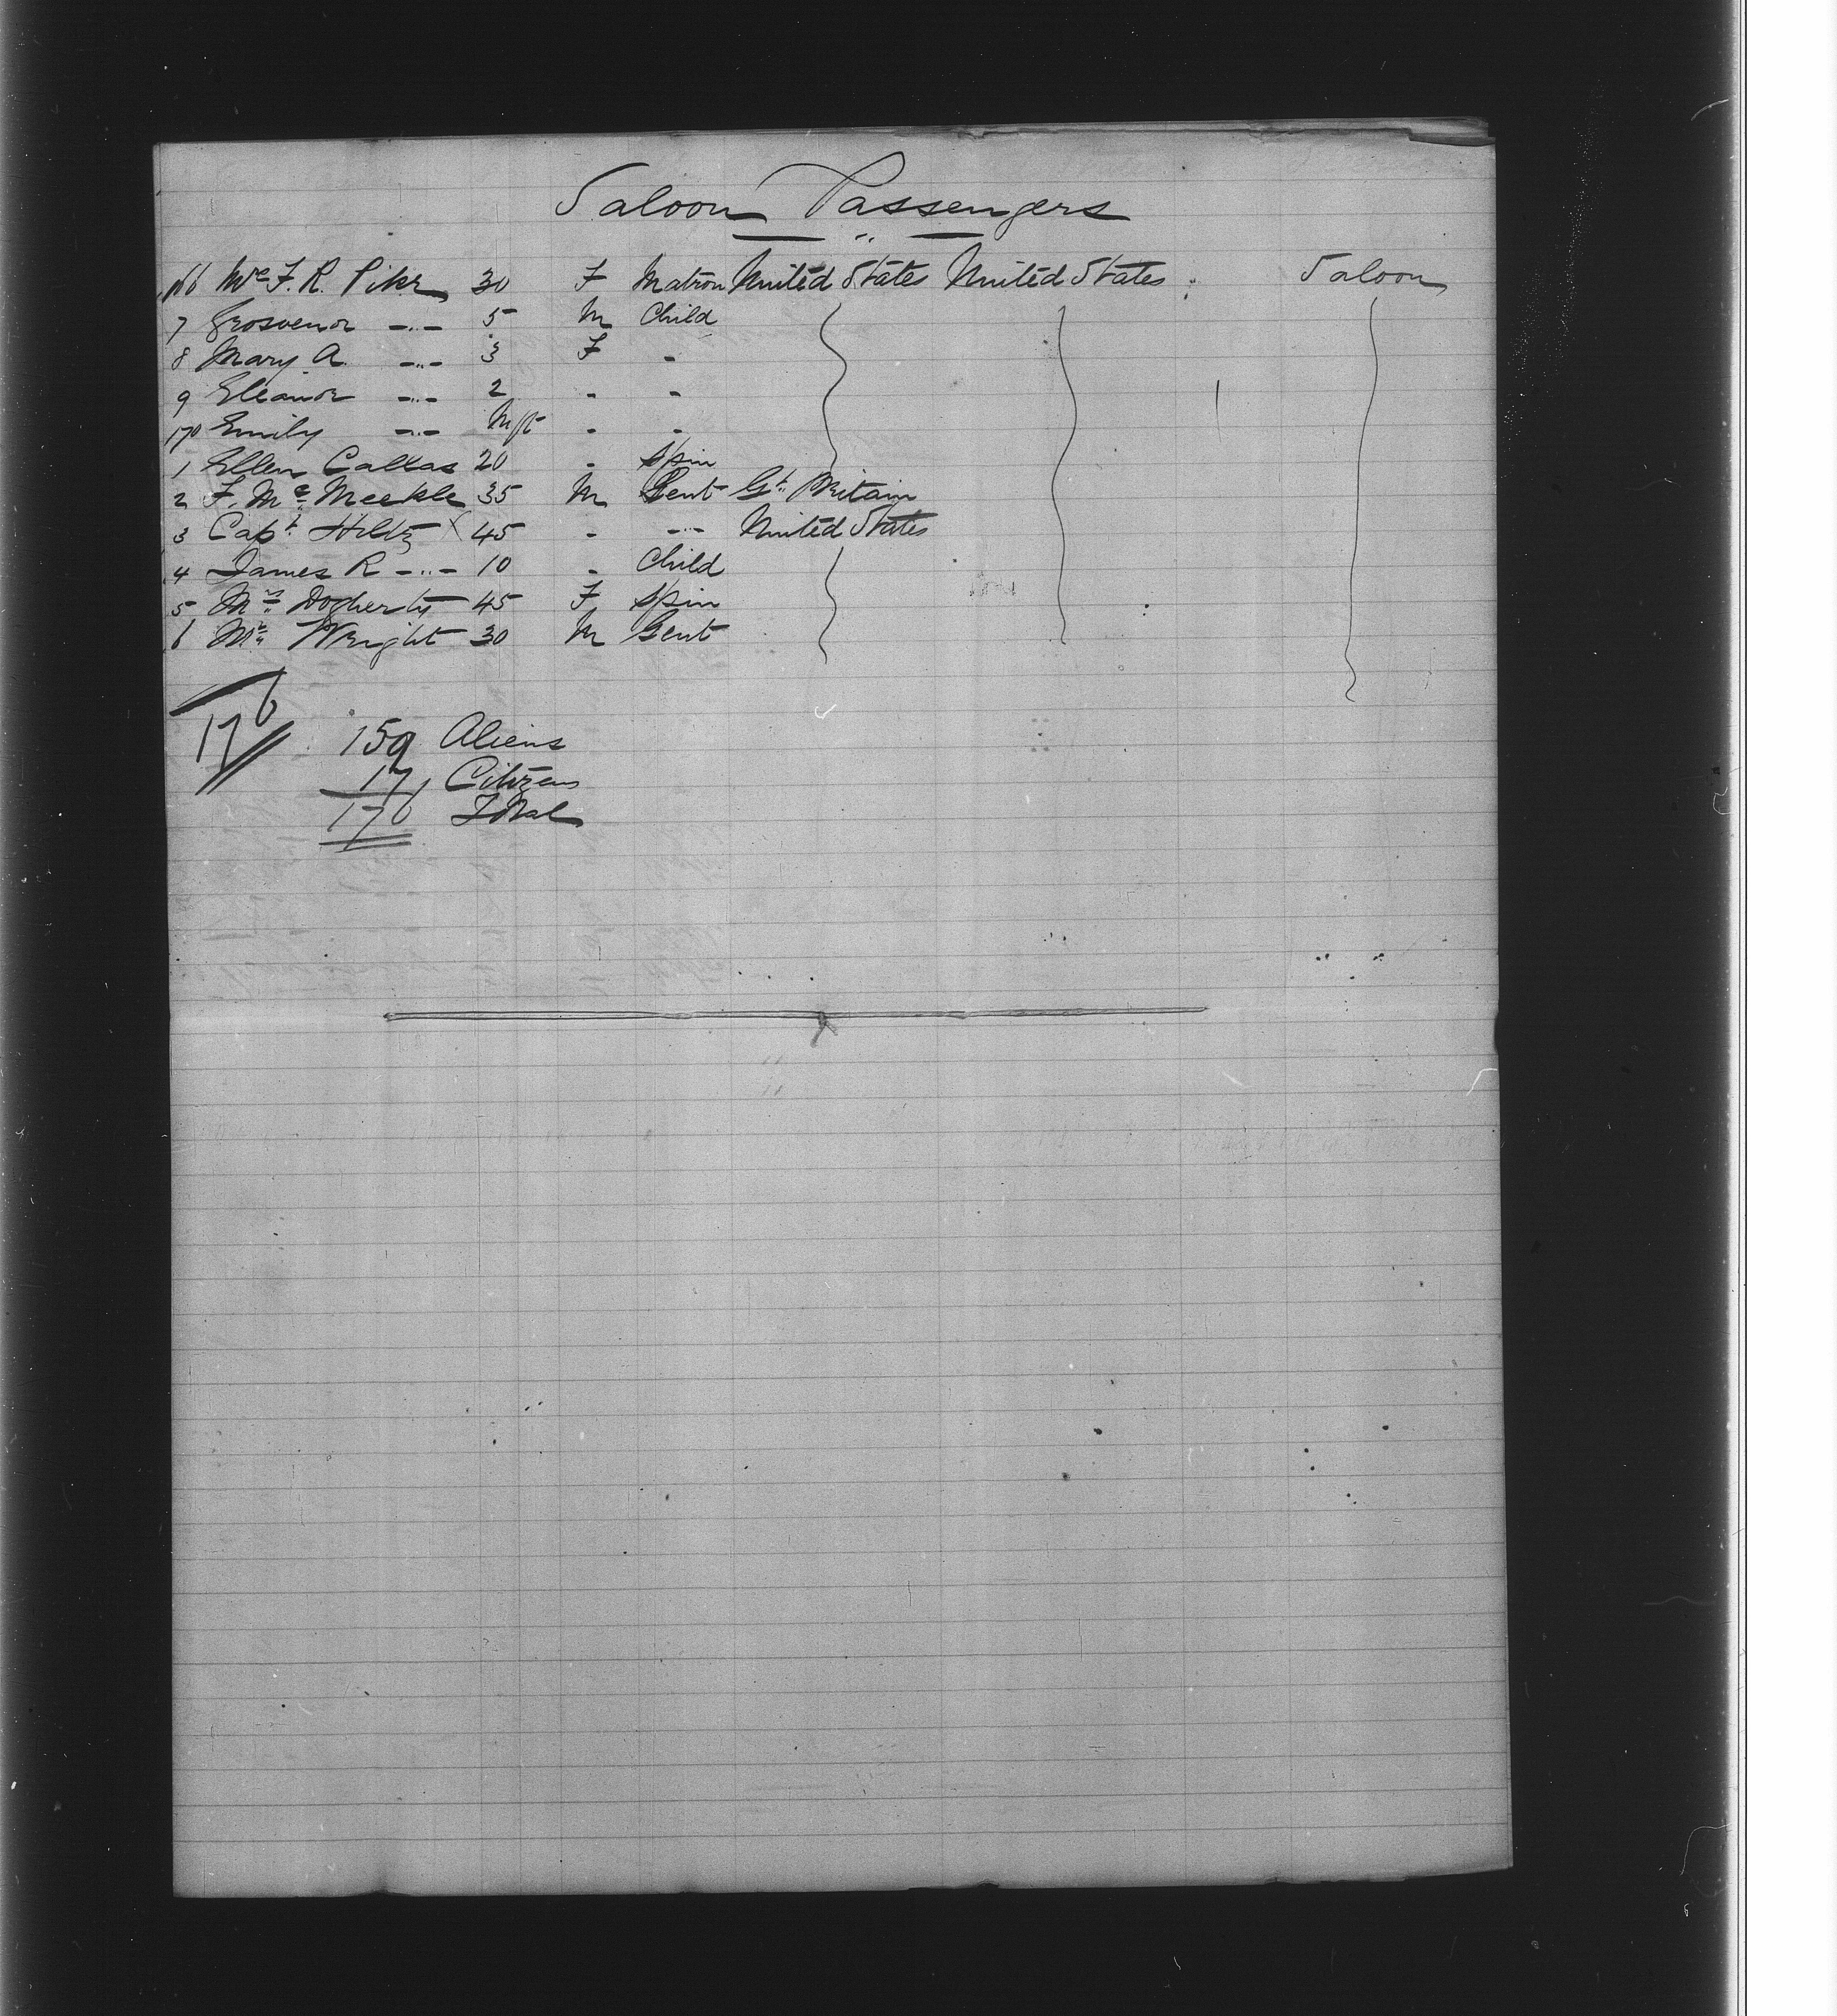 Saloon Passengers
166 Mrs F. R. Pike 30 F Matron United States United States Saloon
7 Grosvenor -"- 5 M Child
8 Mary A. -"- 3 F -
9 Eleanor -"- 2 - -
170 Emily -"- Inft - -
1 Ellen Callas 20 - Spin
2 F. Mc Meekle 35 M Gent Gt Britain
3 Capt Hiltz X 45 - -"- United States
4 James R -"- 10 - Child
5 Mrs Dogherty 45 F Spin
6 Mr Wright 30 M Gent
176
159 Aliens
17 Citizens
176 Total